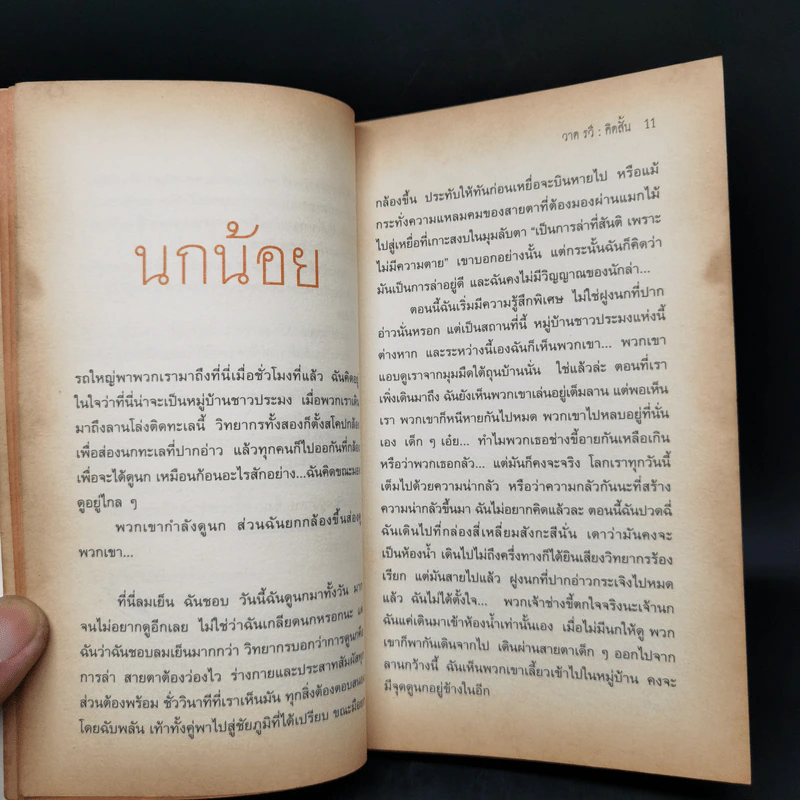 นกน้อย
รถใหญ่พาพวกเรามาถึงที่นี่เมื่อชั่วโมงที่แล้ว ฉันคิดอยู่
ในใจว่าที่นี่น่าจะเป็นหมู่บ้านชาวประมง เมื่อพวกเราเดิน
มาถึงลานโล่งติดทะเลนี้ วิทยากรทั้งสองก็ตั้งสโคปกล้อง
เพื่อส่องนกทะเลที่ปากอ่าว แล้วทุกคนก็ไปออกันที่กล้อง
เพื่อจะได้ดูนก เหมือนก้อนอะไรสักอย่าง...ฉันคิดขณะมอง
ดูอยู่ไกล ๆ
พวกเขากำลังดูนก ส่วนฉันยกกล้องขึ้นส่องดู
พวกเขา...
ที่นี่ลมเย็น ฉันชอบ วันนี้ฉันดูนกมาทั้งวัน มาก
จนไม่อยากดูอีกเลย ไม่ใช่ว่าฉันเกลียดนกหรอกนะ แต่
ฉันว่าฉันชอบลมเย็นมากกว่า วิทยากรบอกว่าการดูนกคือ
การล่า สายตาต้องว่องไว ร่างกายและประสาทสัมผัสทุก
ส่วนต้องพร้อม ชั่ววินาทีที่เราเห็นมัน ทุกสิ่งต้องตอบสนอง
โดยฉับพลัน เท้าทั้งคู่พาไปสู่ชัยภูมิที่ได้เปรียบ ขณะมือยก
วาด รวี : คิดสั้น 11
กล้องขึ้น ประทับให้ทันก่อนเหยื่อจะบินหายไป หรือแม้
กระทั่งความแหลมคมของสายตาที่ต้องมองผ่านแมกไม้
ไปสู่เหยื่อที่เกาะสงบในมุมลับตา “เป็นการล่าที่สันติ เพราะ
ไม่มีความตาย” เขาบอกอย่างนั้น แต่กระนั้นฉันก็คิดว่า
มันเป็นการล่าอยู่ดี และฉันคงไม่มีวิญญาณของนักล่า...
ตอนนี้ฉันเริ่มมีความรู้สึกพิเศษ ไม่ใช่ฝูงนกที่ปาก
อ่าวนั่นหรอก แต่เป็นสถานที่นี้ หมู่บ้านชาวประมงแห่งนี้
ต่างหาก และระหว่างนี้เองฉันก็เห็นพวกเขา... พวกเขา
แอบดูเราจากมุมมืดใต้ถุนบ้านนั่น ใช่แล้วล่ะ ตอนที่เรา
เพิ่งเดินมาถึง ฉันยังเห็นพวกเขาเล่นอยู่เต็มลาน แต่พอเห็น
เรา พวกเขาก็หนีหายกันไปหมด พวกเขาไปหลบอยู่ที่นั่น
เอง เด็ก ๆ เอ๋ย... ทำไมพวกเธอช่างขี้อายกันเหลือเกิน
หรือว่าพวกเธอกลัว... แต่มันก็คงจะจริง โลกเราทุกวันนี้
เต็มไปด้วยความน่ากลัว หรือว่าความกลัวกันนะที่สร้าง
ความน่ากลัวขึ้นมา ฉันไม่อยากคิดแล้วละ ตอนนี้ฉันปวดฉี่
ฉันเดินไปที่กล่องสี่เหลี่ยมสังกะสีนั่น เดาว่ามันคงจะ
เป็นห้องน้ำ เดินไปไม่ถึงครึ่งทางก็ได้ยินเสียงวิทยากรร้อง
เรียก แต่มันสายไปแล้ว ฝูงนกที่ปากอ่าวกระเจิงไปหมด
แล้ว ฉันไม่ได้ตั้งใจ... พวกเจ้าช่างขี้ตกใจจริงนะเจ้านก
ฉันแค่เดินมาเข้าห้องน้ำเท่านั้นเอง เมื่อไม่มีนกให้ดู พวก
เขาก็พากันเดินจากไป เดินผ่านสายตาเด็ก ๆ ออกไปจาก
ลานกว้างนี้ ฉันเห็นพวกเขาเลี้ยวเข้าไปในหมู่บ้าน คงจะ
มีจุดดูนกอยู่ข้างในอีก